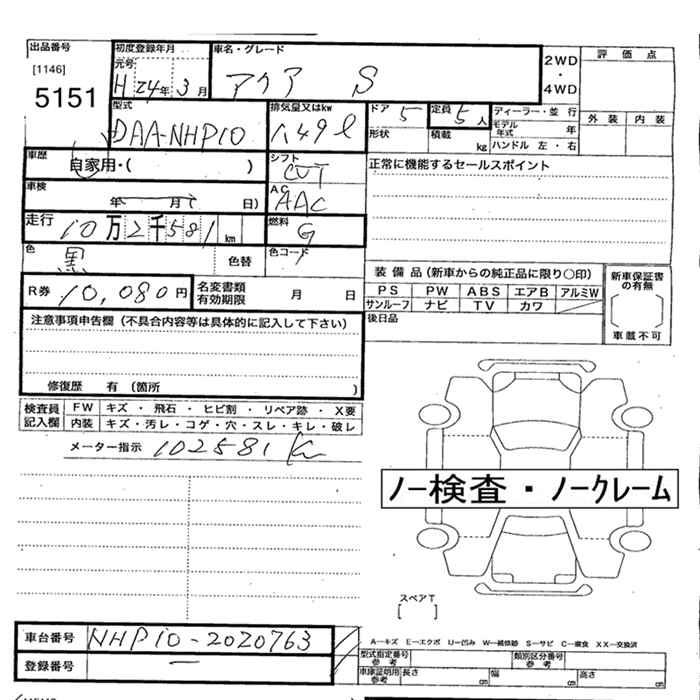 出品番号 初度登録年月 車名・グレード 2WD・4WD 評価点
[1146] 元号
5151 H 24年 3月 アクア S
外装 内装
型式 排気量又はkw ドア 5 定員 5人 ディーラー・並行
DAA-NHP10 1.49ℓ 形状 積載 kg モデル年式 年
ハンドル 左・右
車歴 自家用・( ) シフト CVT 正常に機能するセールスポイント
車検 年 月 日) AC AAC
走行 10万2千581km 燃料 G
色 黒 色替 色コード
装備品(新車からの純正品に限り○印) 新車保証書の有無
R券 10,080円 名変書類有効期限 月 日 PS PW ABS エアB アルミW
サンルーフ ナビ TV カワ
注意事項申告欄(不具合内容等は具体的に記入して下さい) 後日品 車載不可
修復歴 有(箇所 )
検査員記入欄 FW キズ・飛石・ヒビ割・リペア跡・X要
内装 キズ・汚レ・コゲ・穴・スレ・キレ・破レ
メーター指示 102581 Km
ノー検査・ノークレーム
スペアT
[ ]
車台番号 NHP10-2020763 A－キズ E－エクボ U－凹み W－補修跡 S－サビ C－腐食 XX－交換済
登録番号 － 型式指定番号 参考 類別区分番号 参考
車庫証明用 参考 長さ cm 幅 cm 高さ cm